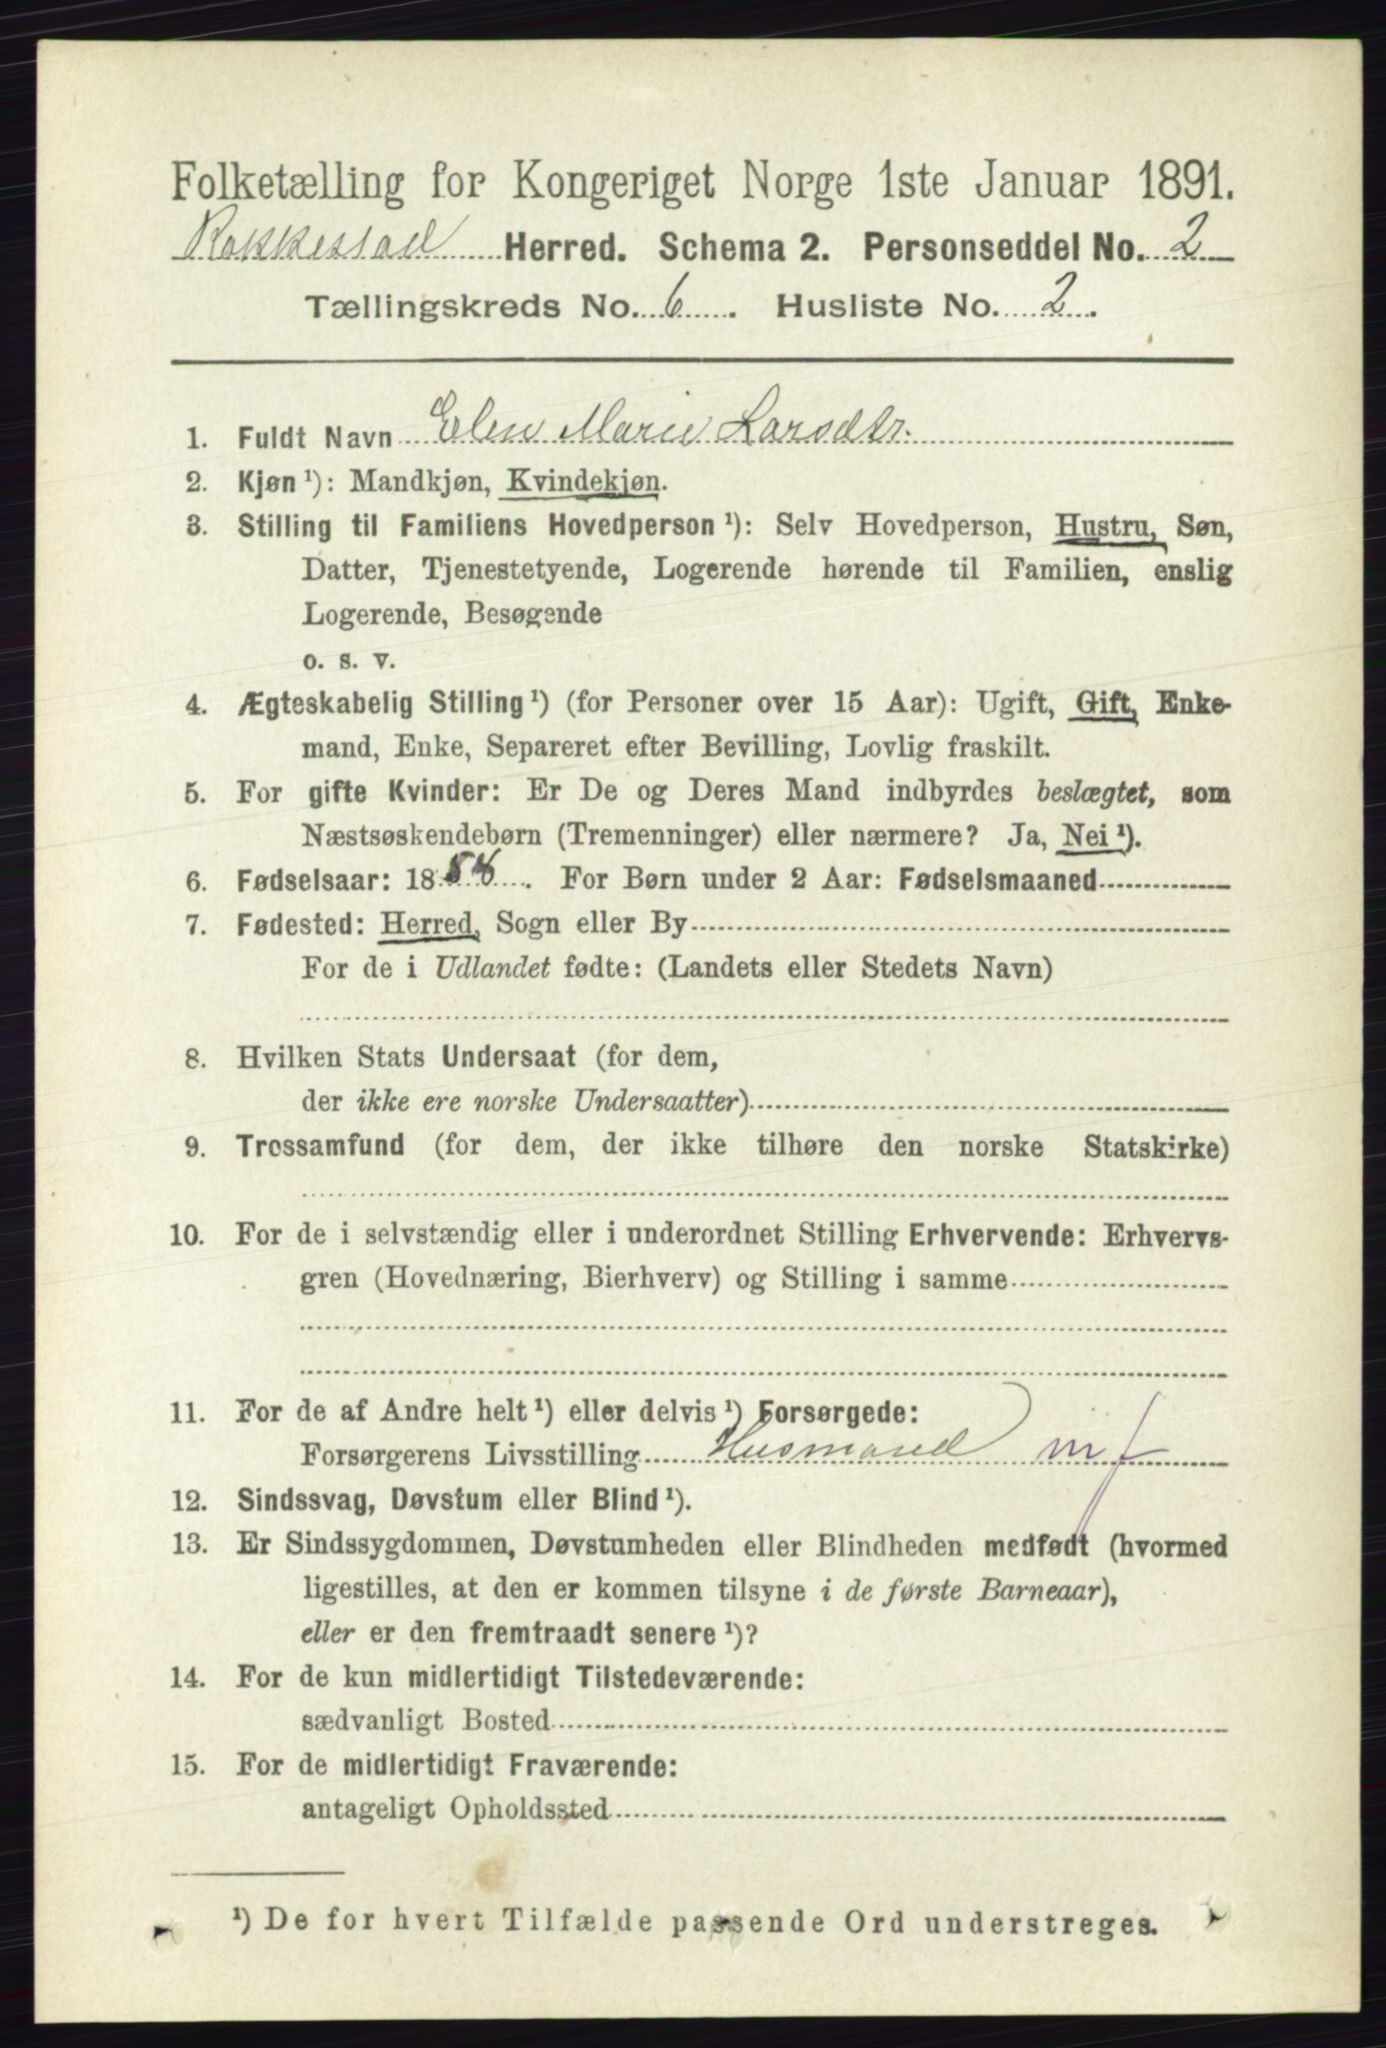 Folketælling for Kongeriget Norge 1ste Januar 1891.
Rakkestad Herred. Schema 2. Personseddel No. 2
Tællingskreds No. 6. Husliste No. 2.
1. Fuldt Navn Elen Marie Larsdtr.
2. Kjøn ¹): Mandkjøn, Kvindekjøn.
3. Stilling til Familiens Hovedperson ¹): Selv Hovedperson, Hustru, Søn,
Datter, Tjenestetyende, Logerende hørende til Familien, enslig
Logerende, Besøgende
o. s. v.
4. Ægteskabelig Stilling ¹) (for Personer over 15 Aar): Ugift, Gift, Enke-
mand, Enke, Separeret efter Bevilling, Lovlig fraskilt.
5. For gifte Kvinder: Er De og Deres Mand indbyrdes beslægtet, som
Næstsøskendebørn (Tremenninger) eller nærmere? Ja, Nei ¹).
6. Fødselsaar: 18 . For Børn under 2 Aar: Fødselsmaaned
7. Fødested: Herred, Sogn eller By
For de i Udlandet fødte: (Landets eller Stedets Navn)
8. Hvilken Stats Undersaat (for dem,
der ikke ere norske Undersaatter)
9. Trossamfund (for dem, der ikke tilhøre den norske Statskirke)
10. For de i selvstændig eller i underordnet Stilling Erhvervende: Erhvervs-
gren (Hovednæring, Bierhverv) og Stilling i samme
11. For de af Andre helt ¹) eller delvis ¹) Forsørgede:
Forsørgerens Livsstilling Husmand
12. Sindssvag, Døvstum eller Blind ¹).
13. Er Sindssygdommen, Døvstumheden eller Blindheden medfødt (hvormed
ligestilles, at den er kommen tilsyne i de første Barneaar),
eller er den fremtraadt senere ¹)?
14. For de kun midlertidigt Tilstedeværende:
sædvanligt Bosted
15. For de midlertidigt Fraværende:
antageligt Opholdssted
¹) De for hvert Tilfælde passende Ord understreges.